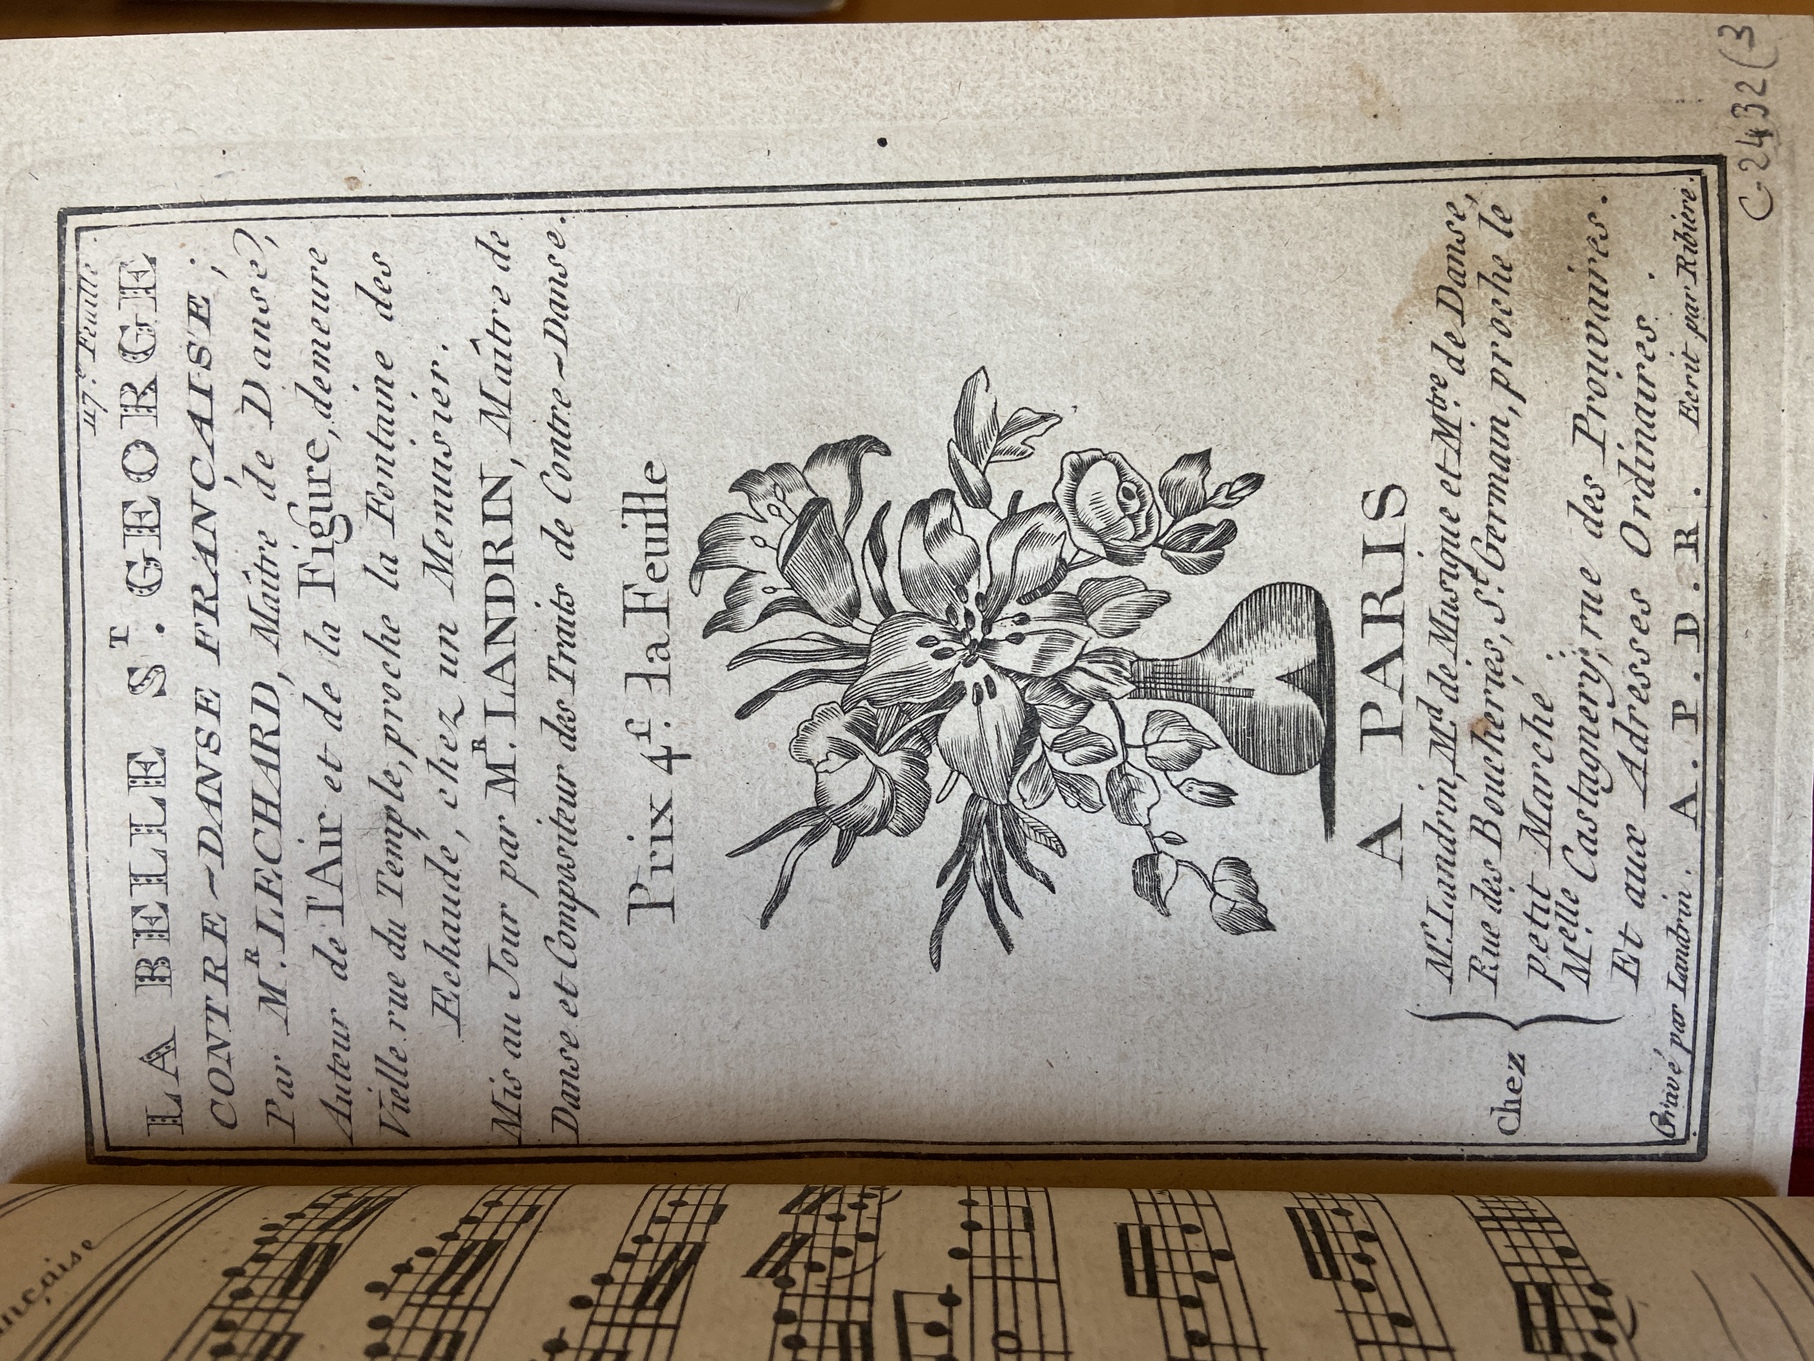 47.e Feuille.
LA BELLE ST. GEORGE
CONTRE-DANSE FRANÇAISE;
Par MR. LECHARD, Maître de Danse,
Auteur de l'Air et de la Figure, demeure
Vielle rue du Temple, proche la Fontaine des
Echaudé, chez un Menuisier.
Mis au Jour par MR. LANDRIN, Maître de
Danse et Compositeur des Traits de Contre-Danse.
Prix 4f. la Feuille
A PARIS
Chez
Mr. Landrin, Md. de Musique et Mtre. de Danse,
Rue dès Boucheriés, St. Germain, proche le
petit Marché
Melle Castagnery, rue des Prouvaires.
Et aux Adrèsses Ordinaires.
Gravé par Landrin. A. P. D. R. Ecrit par Ribière.
C 2432(3
nçaise